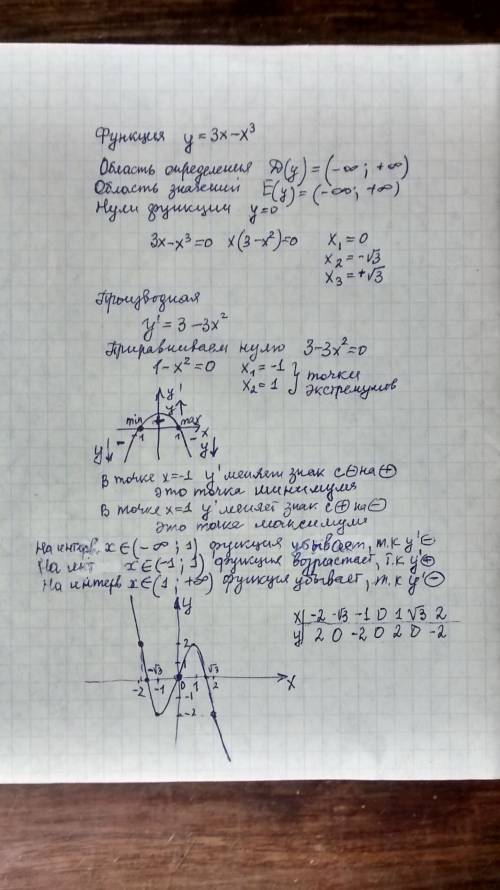 Функция y = 3x – x³
Область определения D(y) = (-∞; +∞)
Область значений E(y) = (-∞; +∞)
Нули функции y=0
3x-x³=0 x(3-x²)=0 x₁ = 0
x₂ = -√3
x₃ = +√3
Производная
y' = 3 - 3x²
Приравниваем нулю 3-3x²=0
1-x²=0 x₁ = -1
x₂ = 1 } точки экстремумов
y'
y ↑
min + max
y↓ - -1 1 - x
y↓
В точке x=-1 y' меняет знак с ⊖ на ⊕
это точка минимума
В точке x=1 y' меняет знак с ⊕ на ⊖
это точка максимума
На интерв. x∈(-∞; 1) функция убывает, т.к y' ⊖
На инт x∈(-1; 1) функция возрастает, т.к y' ⊕
На интерв x∈(1; +∞) функция убывает, т.к y' ⊖
y
x | -2 -√3 -1 0 1 √3 2
y | 2 0 -2 0 2 0 -2
2
-√3 1 √3
-2 -1 0 1 2 x
-1
-2